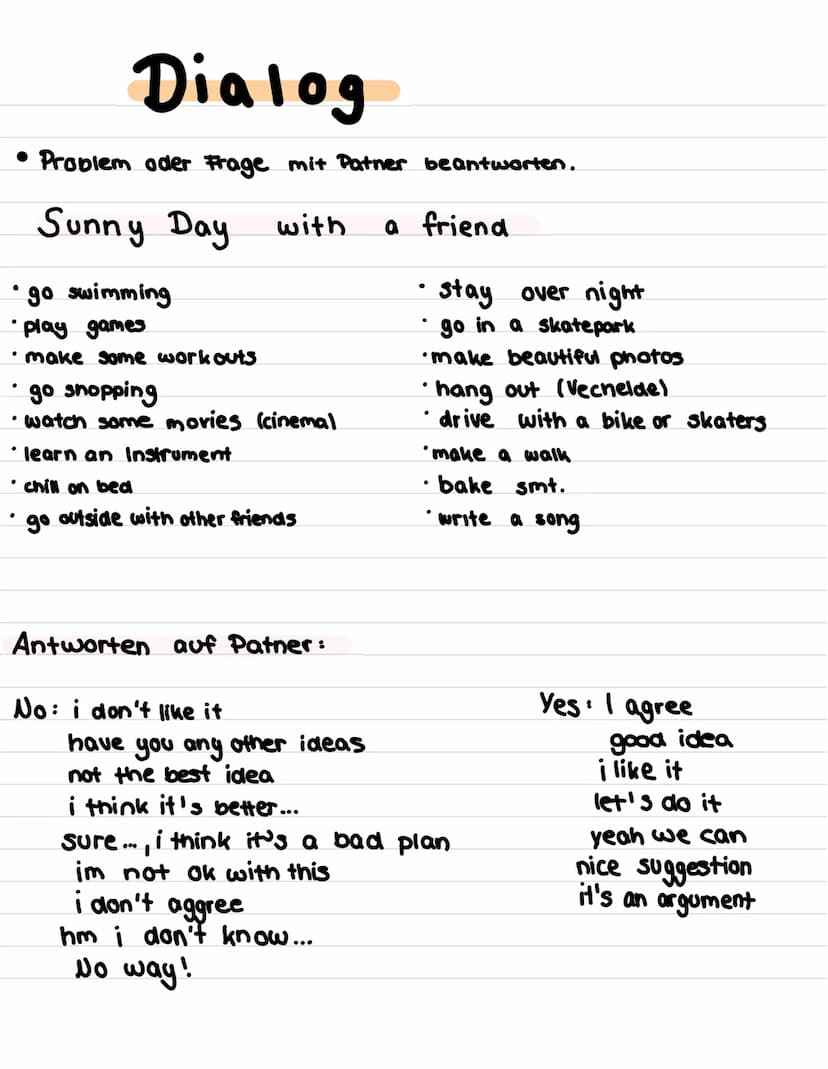 Dialog
• Problem oder Frage mit Patner beantworten.
Sunny Day with a friend
• go swimming
• play games
• make some workouts
• go shopping
• watch some movies (cinema)
• learn an Instrument
• chill on bed
• go outside with other friends
• stay over night
• go in a skatepark
• make beautiful photos
• hang out (Vechelde)
• drive with a bike or skaters
• make a walk
• bake smt.
• write a song
Antworten auf Patner:
No: i don't like it
have you any other ideas
not the best idea
i think it's better...
sure..., i think it's a bad plan
im not ok with this
i don't aggree
hm i don't know...
No way!
Yes: I agree
good idea
i like it
let's do it
yeah we can
nice suggestion
it's an argument